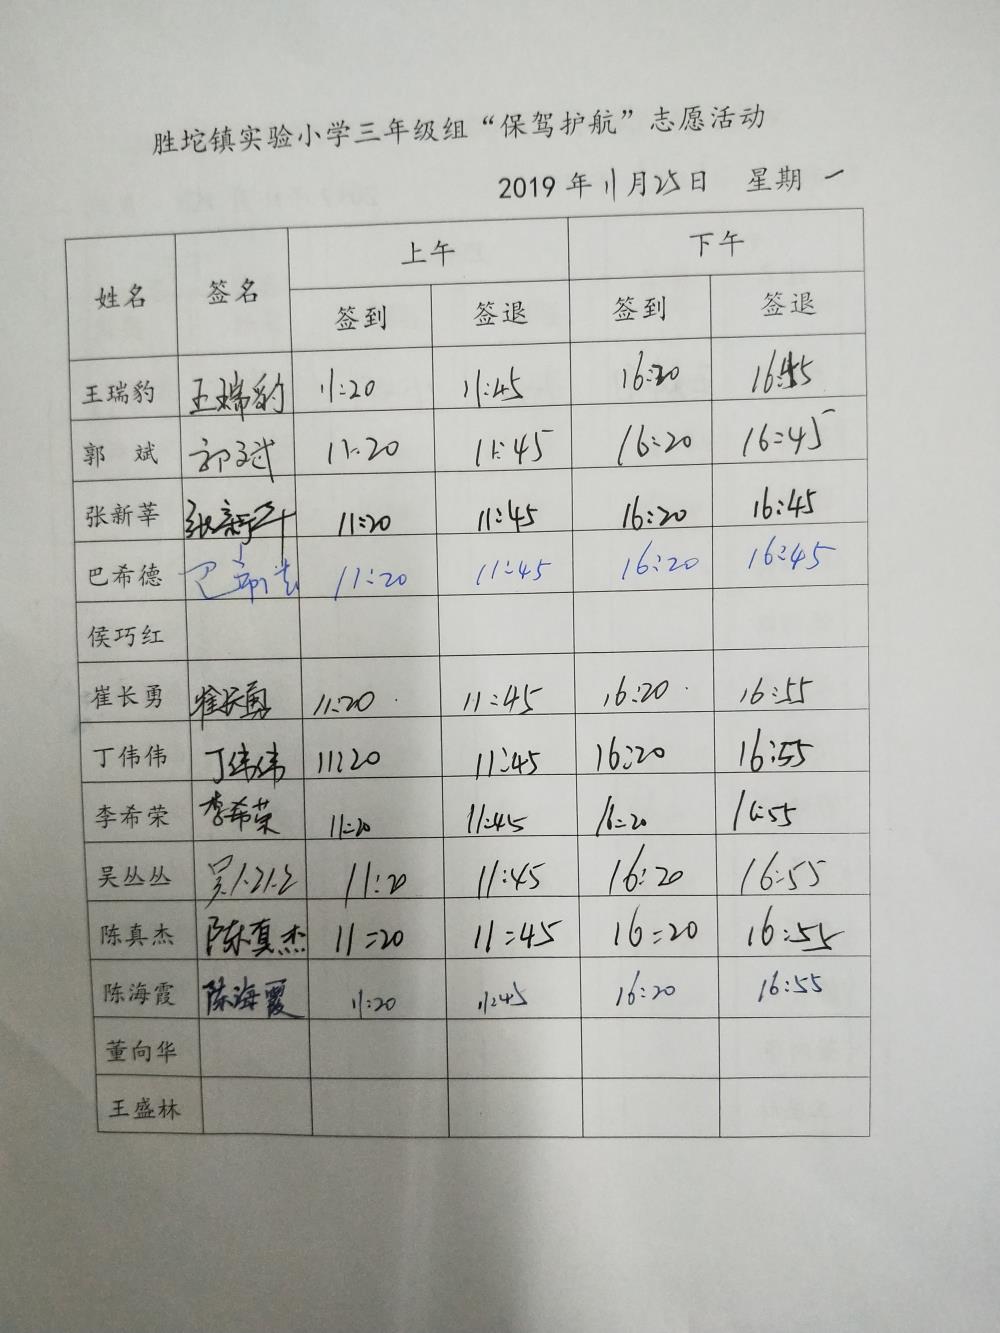 胜坨镇实验小学三年级组“保驾护航”志愿活动
2019 年 11 月 25 日 星期 一
姓名 签名 上午 下午
签到 签退 签到 签退
王瑞豹 王瑞豹 11:20 11:45 16:20 16:45
郭 斌 郭斌 11:20 11:45 16:20 16:45
张新莘 张新莘 11:20 11:45 16:20 16:45
巴希德 巴希德 11:20 11:45 16:20 16:45
侯巧红
崔长勇 崔长勇 11:20 11:45 16:20 16:55
丁伟伟 丁伟伟 11:20 11:45 16:20 16:55
李希荣 李希荣 11:20 11:45 16:20 16:55
吴丛丛 吴丛丛 11:20 11:45 16:20 16:55
陈真杰 陈真杰 11:20 11:45 16:20 16:55
陈海霞 陈海霞 11:20 11:45 16:20 16:55
董向华
王盛林